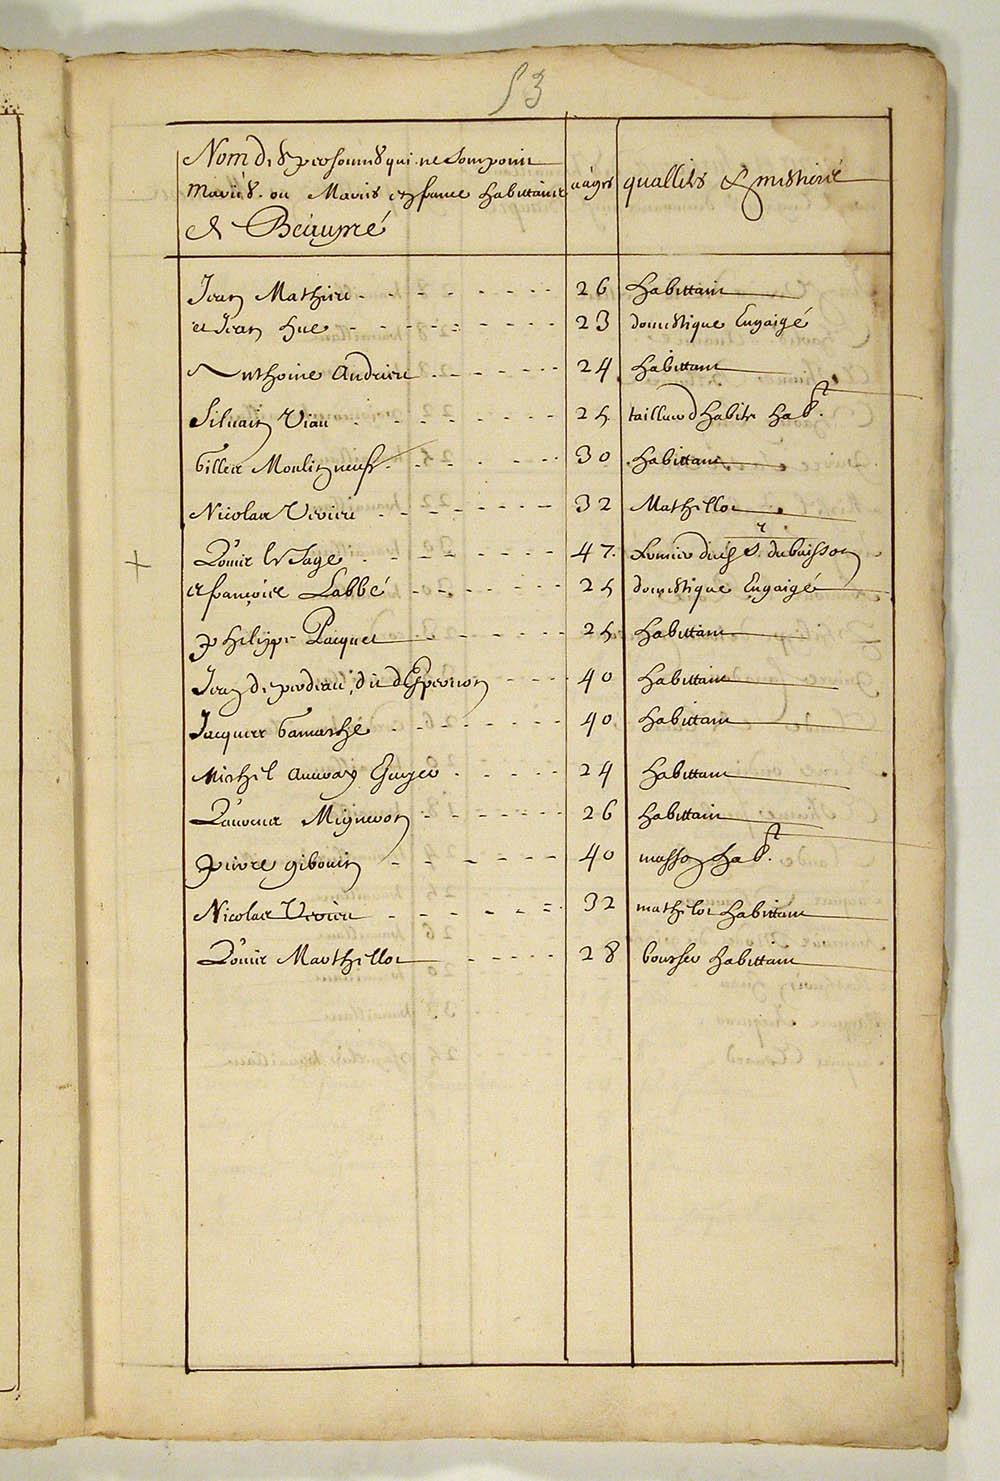 53
Nom des personnes qui ne sont point
Mariés ou Mariés en france habittants
de Beaupré
aâges
quallités & mestiers
Jean Mathieu 26 habittant
et Jean hue 23 domestique Engaigé
Anthoine Andrieu 24 habittant
Silvain Viau 25 tailleur d'habits hab.t
Gilles Moulin neuf 30 habittant
Nicolas Verieu 32 Mathellot
+ Louis le Sage 47. fermier du S.r dubuisson
et françois Labbé 25 domestique Engaigé
philippe Pacquet 25 habittant
Jean de perdeau, dit d'Espernon 40 habittant
Jacques Gamashe 40 habittant
Michel Auuray 24 habittant
Laurens Migneron 26 habittant
pierre gibouin 40 masson hab.t
Nicolas Verieu 32 mathelot habittant
Louis Marthellot 28 habittant